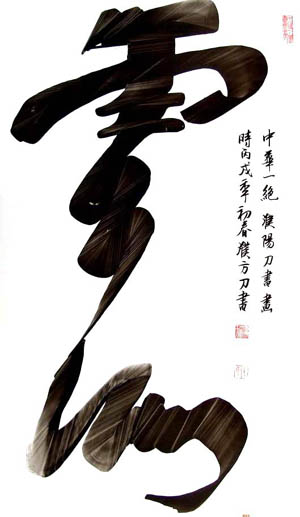 雲
中華一絶 濮陽刀書畫
時丙戌年初春濮方刀書